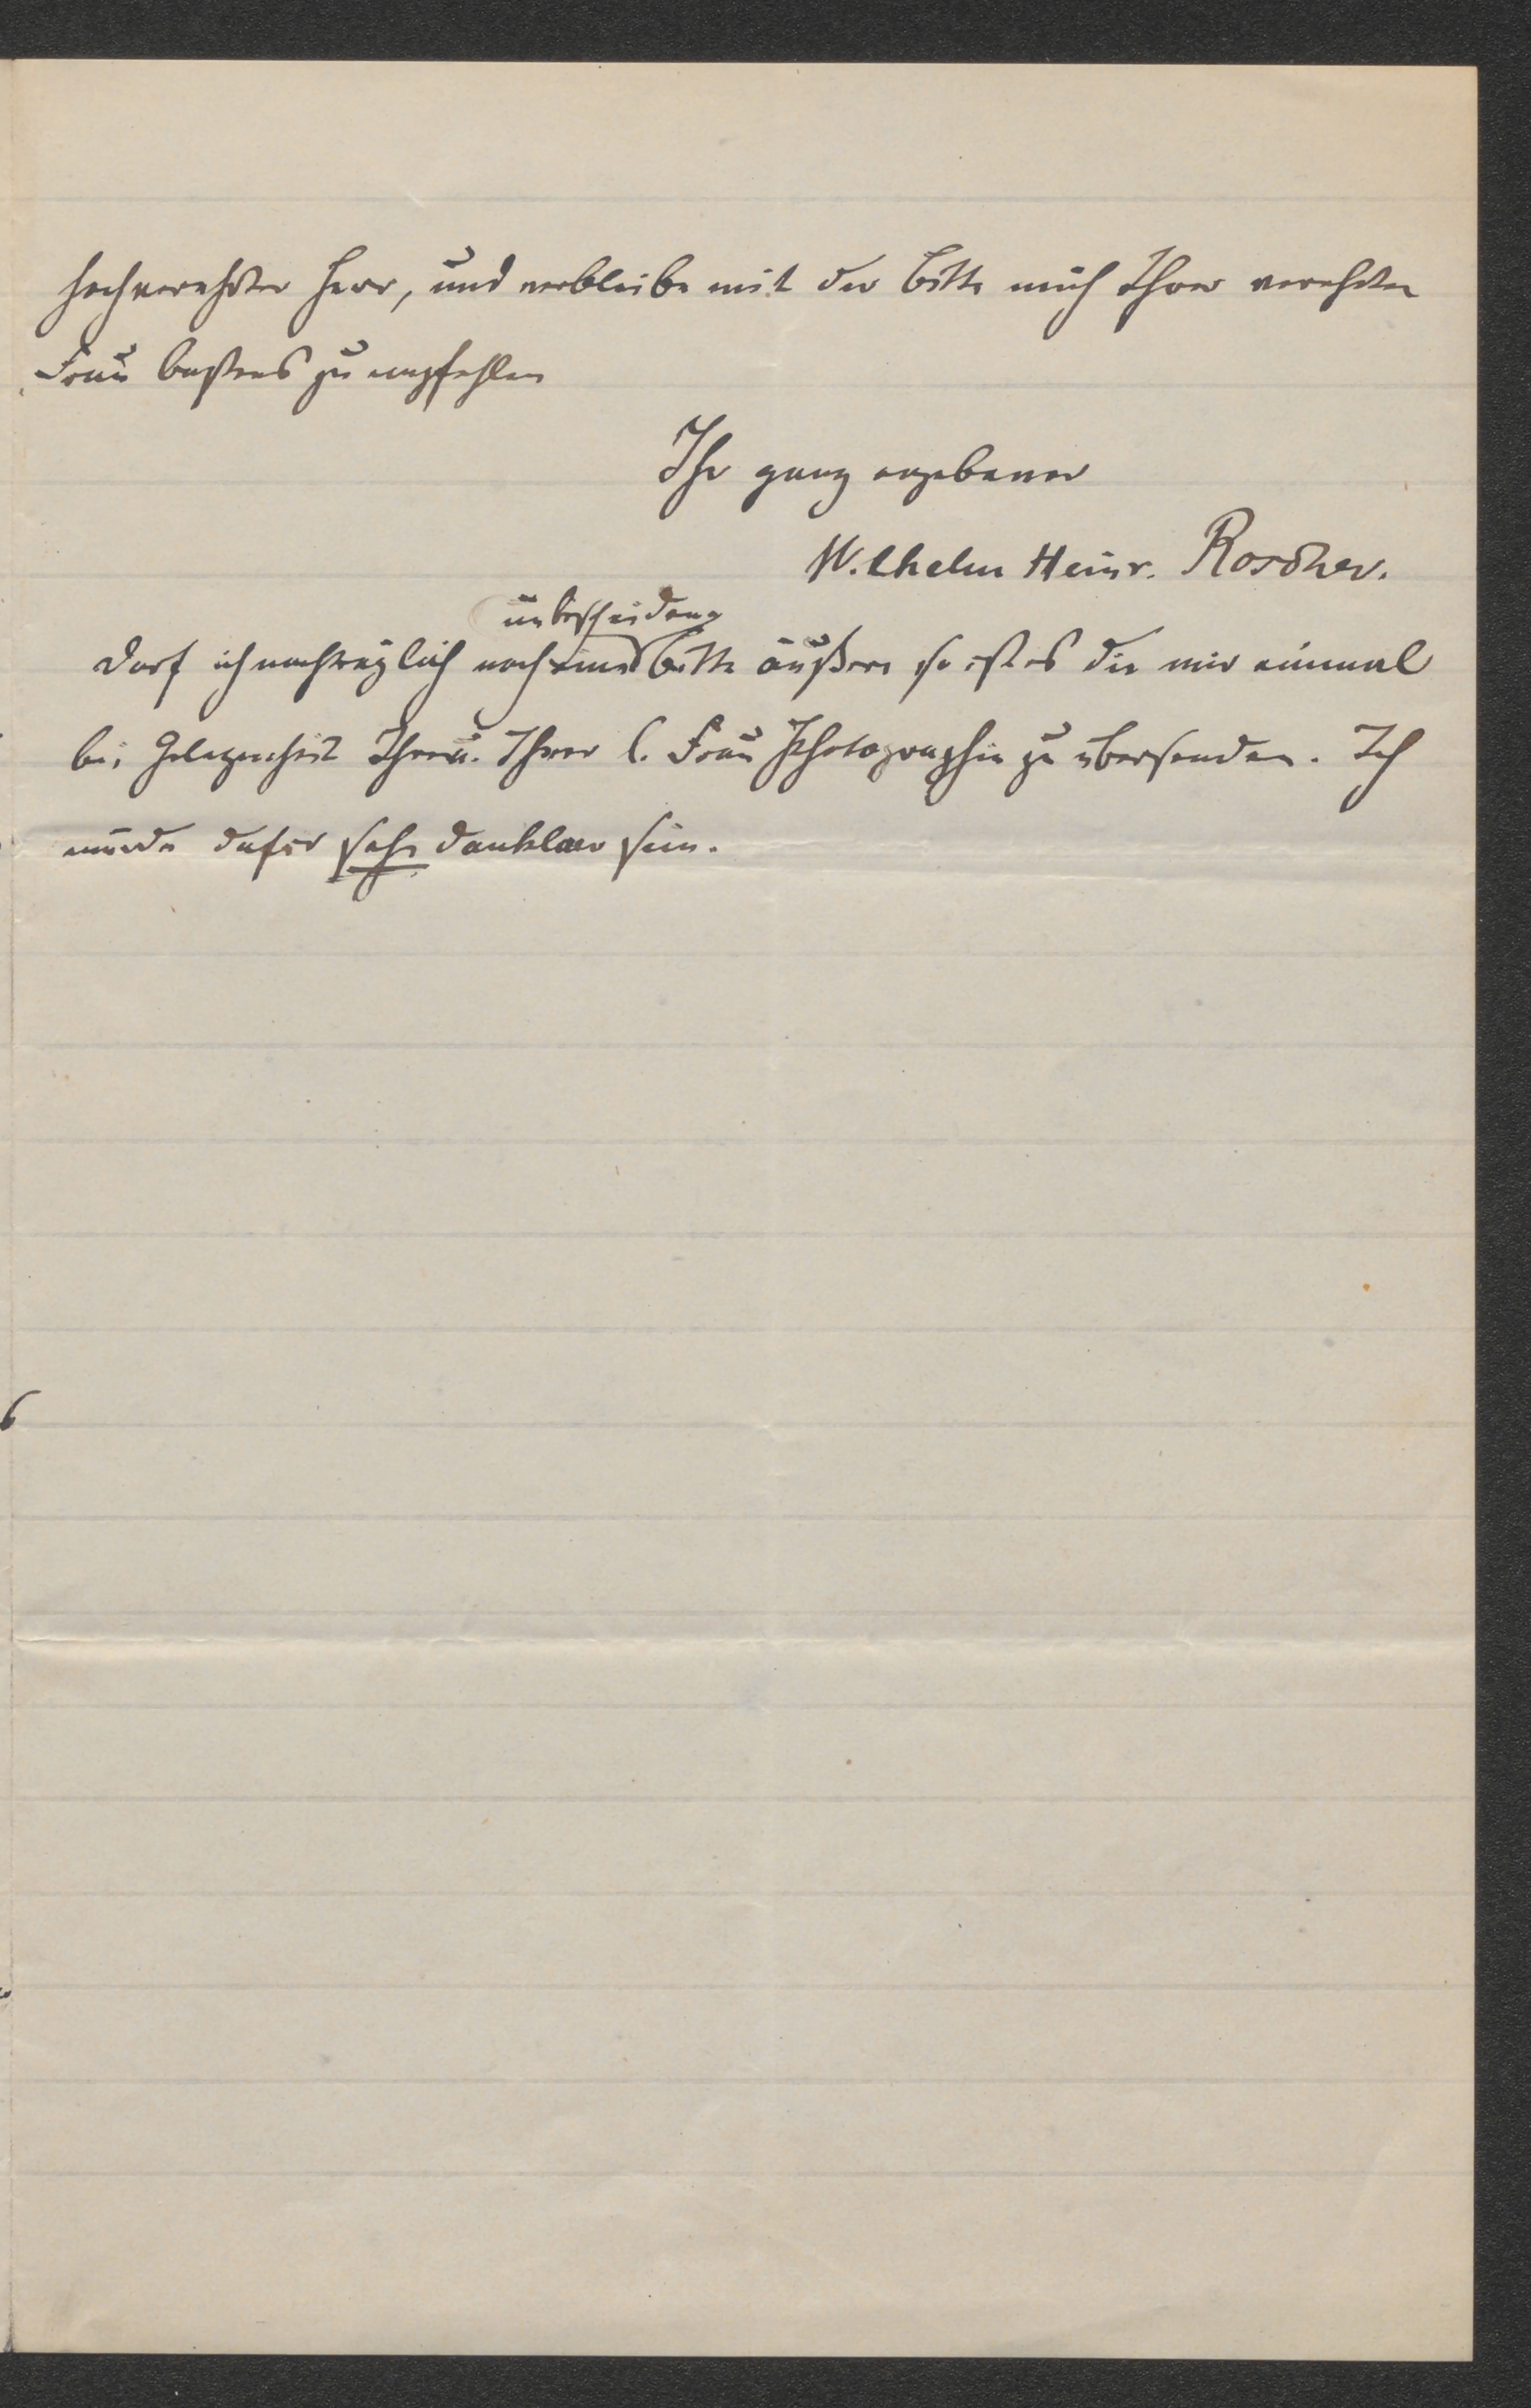 hochverehrter Herr, und verbleibe mit der Bitte mich Ihrer verehrten
Frau bestens zu empfehlen
Ihr ganz ergebener
Wilhelm Heinr. Roscher.
unbescheidene
Darf ich nachträglich noch eine Bitte äußern so ist es die mir einmal
bei Gelegenheit Ihre u. Ihrer l. Frau Photographie zu übersenden. Ich
würde dafür sehr dankbar sein.